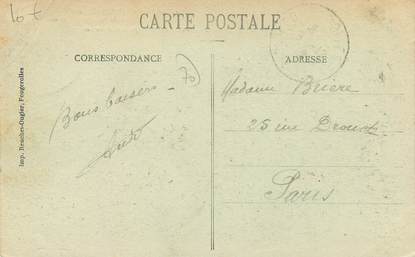 10 f
CARTE POSTALE
CORRESPONDANCE
ADRESSE
70
Bons baisers
Madame Briere
25 rue Drouot
Paris
Imp. Reuchet-Ougier, Fougerolles